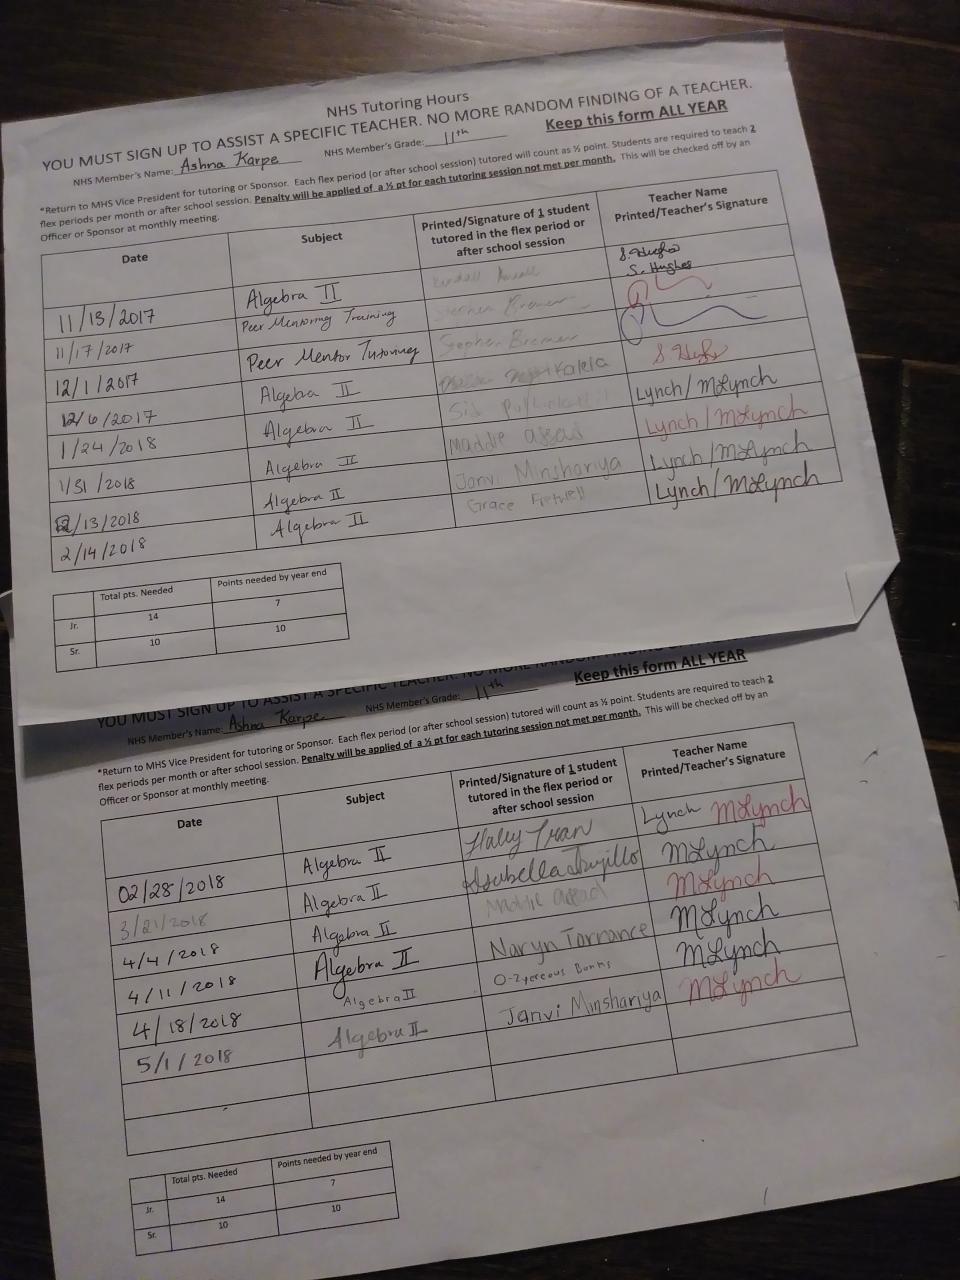 NHS Tutoring Hours
YOU MUST SIGN UP TO ASSIST A SPECIFIC TEACHER. NO MORE RANDOM FINDING OF A TEACHER.
NHS Member's Name: Ashna Karpe NHS Member's Grade: 11th Keep this form ALL YEAR
*Return to MHS Vice President for tutoring or Sponsor. Each flex period (or after school session) tutored will count as ½ point. Students are required to teach 2
flex periods per month or after school session. Penalty will be applied of a ½ pt for each tutoring session not met per month. This will be checked off by an
Officer or Sponsor at monthly meeting.
Date Subject Printed/Signature of 1 student tutored in the flex period or after school session Teacher Name Printed/Teacher's Signature
11/13/2017 Algebra II S. Hughes S. Hughes
11/17/2017 Peer Mentoring Training Stephen Bremer
12/1/2017 Peer Mentor Tutoring Stephen Bremer
12/6/2017 Algebra II Kalela S. Hughes
1/24/2018 Algebra II Sid Lynch/MLynch
1/31/2018 Algebra II Maddie Assad Lynch/MLynch
2/13/2018 Algebra II Janvi Minshariya Lynch/MLynch
2/14/2018 Algebra II Grace Fretwell Lynch/MLynch
Total pts. Needed Points needed by year end
Jr. 14 7
Sr. 10 10
YOU MUST SIGN UP TO ASSIST A SPECIFIC TEACHER. NO MORE RANDOM FINDING
NHS Member's Name: Ashna Karpe NHS Member's Grade: 11th Keep this form ALL YEAR
*Return to MHS Vice President for tutoring or Sponsor. Each flex period (or after school session) tutored will count as ½ point. Students are required to teach 2
flex periods per month or after school session. Penalty will be applied of a ½ pt for each tutoring session not met per month. This will be checked off by an
Officer or Sponsor at monthly meeting.
Date Subject Printed/Signature of 1 student tutored in the flex period or after school session Teacher Name Printed/Teacher's Signature
02/28/2018 Algebra II Haley Tran Lynch MLynch
3/21/2018 Algebra II Isabella Trujillo MLynch
4/4/2018 Algebra II Maddie Assad MLynch
4/11/2018 Algebra II Naryn Torrance MLynch
4/18/2018 Algebra II Banks MLynch
5/1/2018 Algebra II Janvi Minshariya MLynch
Total pts. Needed Points needed by year end
Jr. 14 7
Sr. 10 10